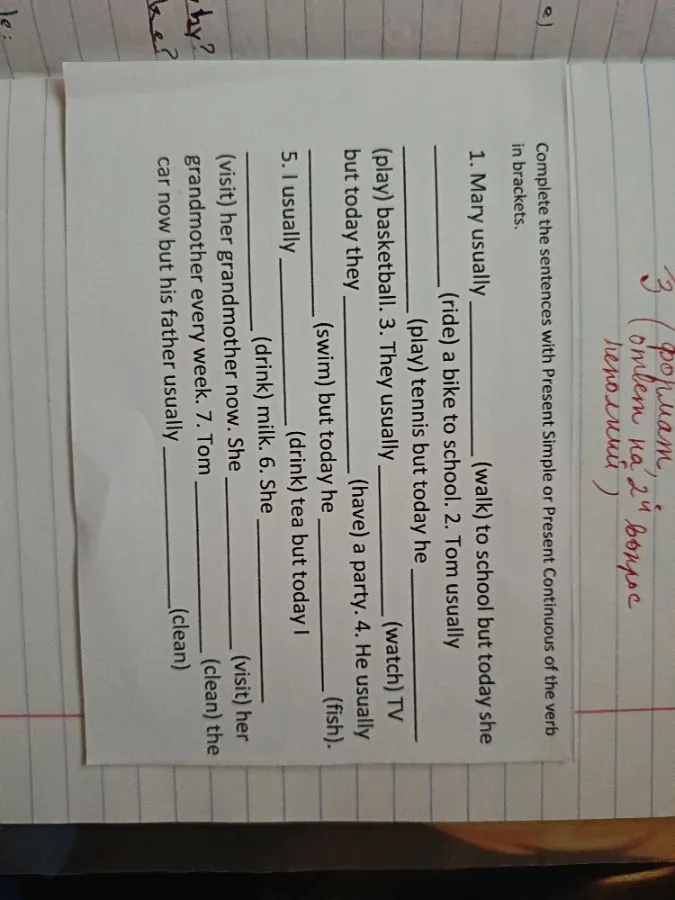 3 (формат,
ответ на 2й вопрос
неполный)
e)
Complete the sentences with Present Simple or Present Continuous of the verb
in brackets.
1. Mary usually ____________ (walk) to school but today she
____________ (ride) a bike to school. 2. Tom usually
____________ (play) tennis but today he ____________
(play) basketball. 3. They usually ____________ (watch) TV
but today they ____________ (have) a party. 4. He usually
____________ (swim) but today he ____________ (fish).
5. I usually ____________ (drink) tea but today I
____________ (drink) milk. 6. She ____________
(visit) her grandmother now. She ____________ (visit) her
grandmother every week. 7. Tom ____________ (clean) the
car now but his father usually ____________ (clean)